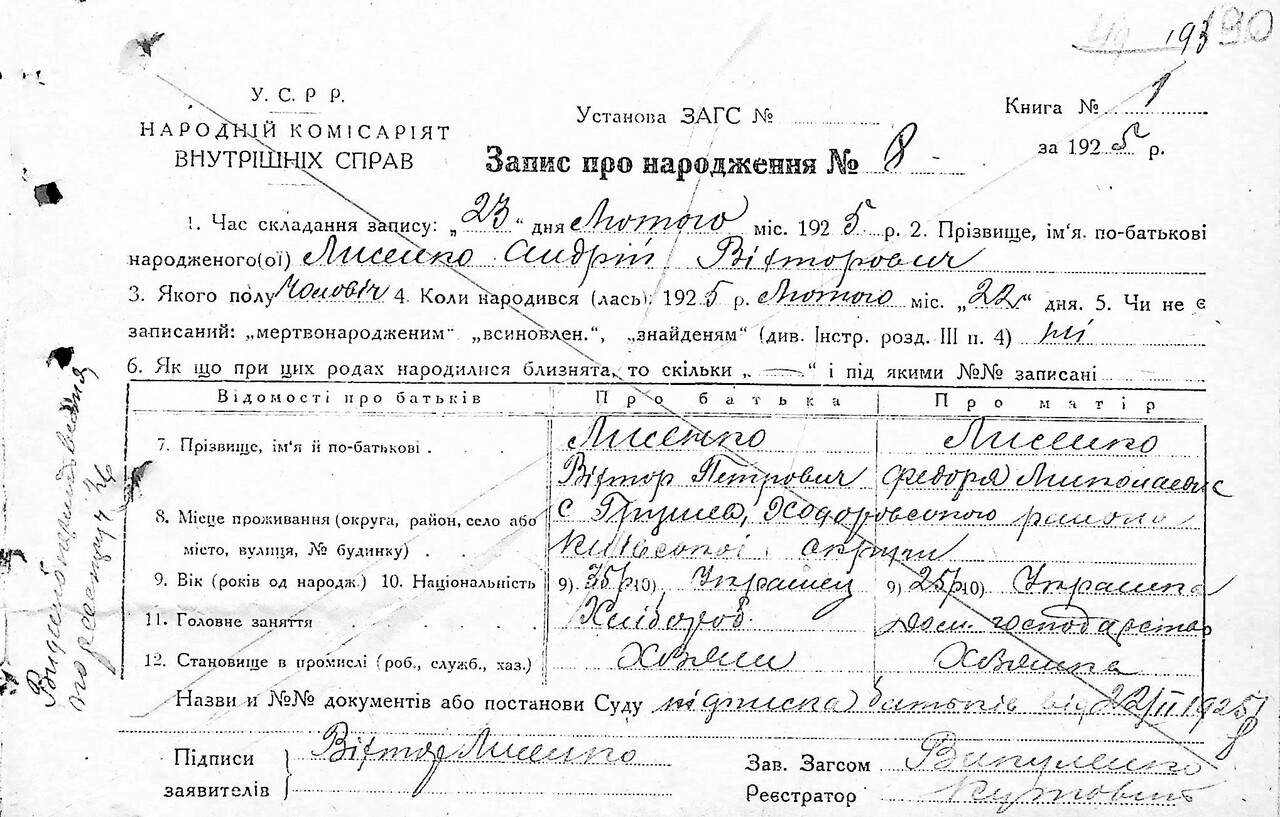 193 90
У. С. Р Р.
НАРОДНІЙ КОМІСАРІЯТ
ВНУТРІШНІХ СПРАВ
Установа ЗАГС №
Книга № 1
за 1925 р.
Запис про народження № 8
1. Час складання запису: „23“ дня Лютого міс. 1925 р. 2. Прізвище, ім‘я. по-батькові
народженого(ої) Лисенко Андрій Вікторович
3. Якого полу Чоловіч 4. Коли народився (лась): 1925 р. Лютого міс. „22“ дня. 5. Чи не є
записаний: „мертвонародженим“ „всиновлен.“, „знайденям“ (див. Інстр. розд. III п. 4) ні
6. Як що при цих родах народилися близнята, то скільки „ — “ і під якими №№ записані
Відомості про батьків Про батька Про матір
7. Прізвище, ім‘я й по-батькові . Лисенко Лисенко
Віктор Петрович Федора Миколаевн
8. Місце проживання (округа, район, село або с Ходоровського района
місто, вулиця, № будинку) . Київської округи
9. Вік (років од народж.) 10. Національність 9) 35р 10) Українец 9) 25р 10) Українка
11. Головне заняття Хлібороб. дом. господарство
12. Становище в промислі (роб., служб., хаз.) Хозяин Хозяйка
Назви и №№ документів або постанови Суду підписка батьків від 22/II 1925
8
Підписи
заявителів
Віктор Лисенко
Зав. Загсом
Реєстратор